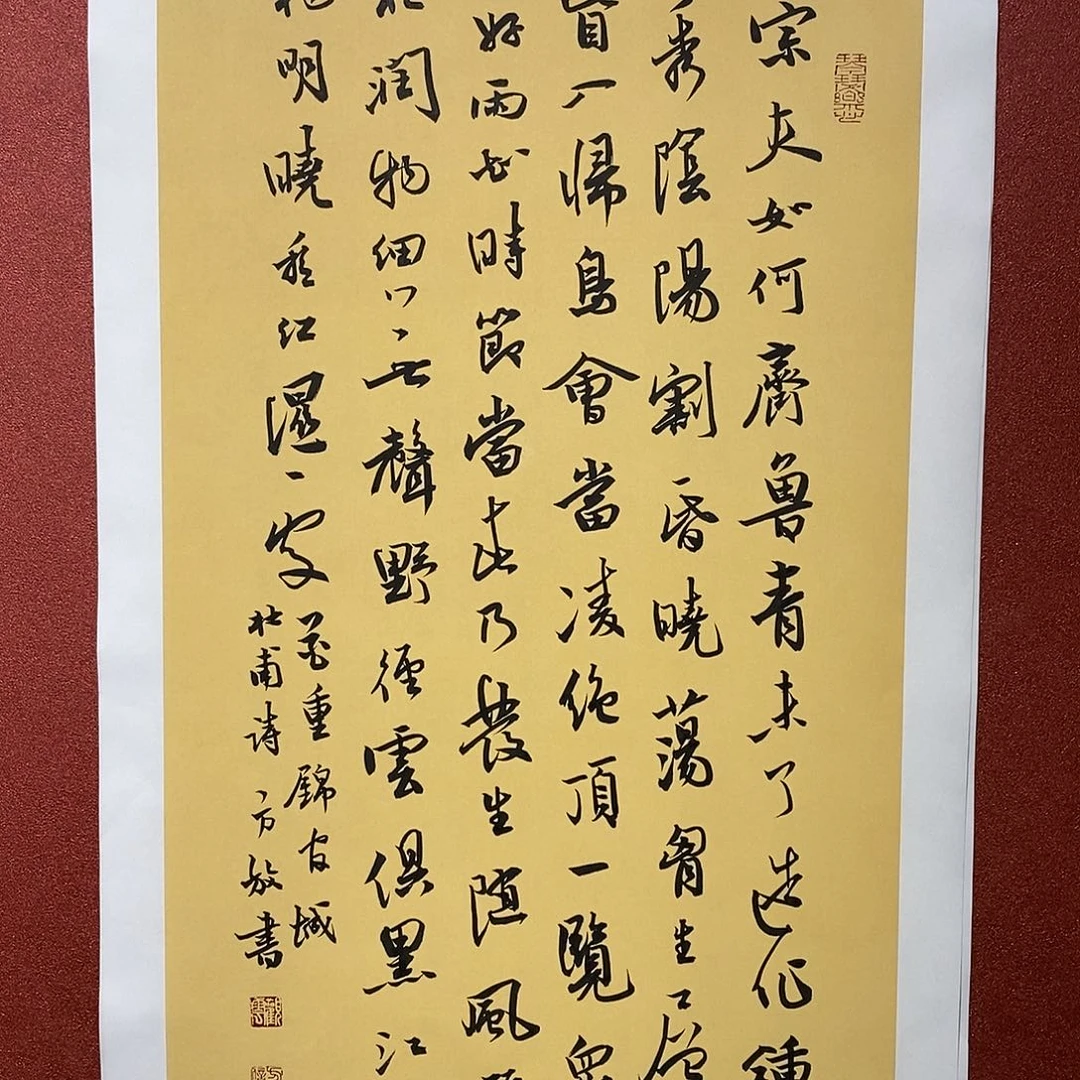 宗夫如何齊魯青未了造化鍾
秀陰陽割昏曉蕩胷生層
眥入歸鳥會當凌絕頂一覽眾
好雨知時節當春乃發生隨風
潤物細無聲野徑雲俱黑江
明曉看紅濕處
花重錦官城
杜甫詩方放書